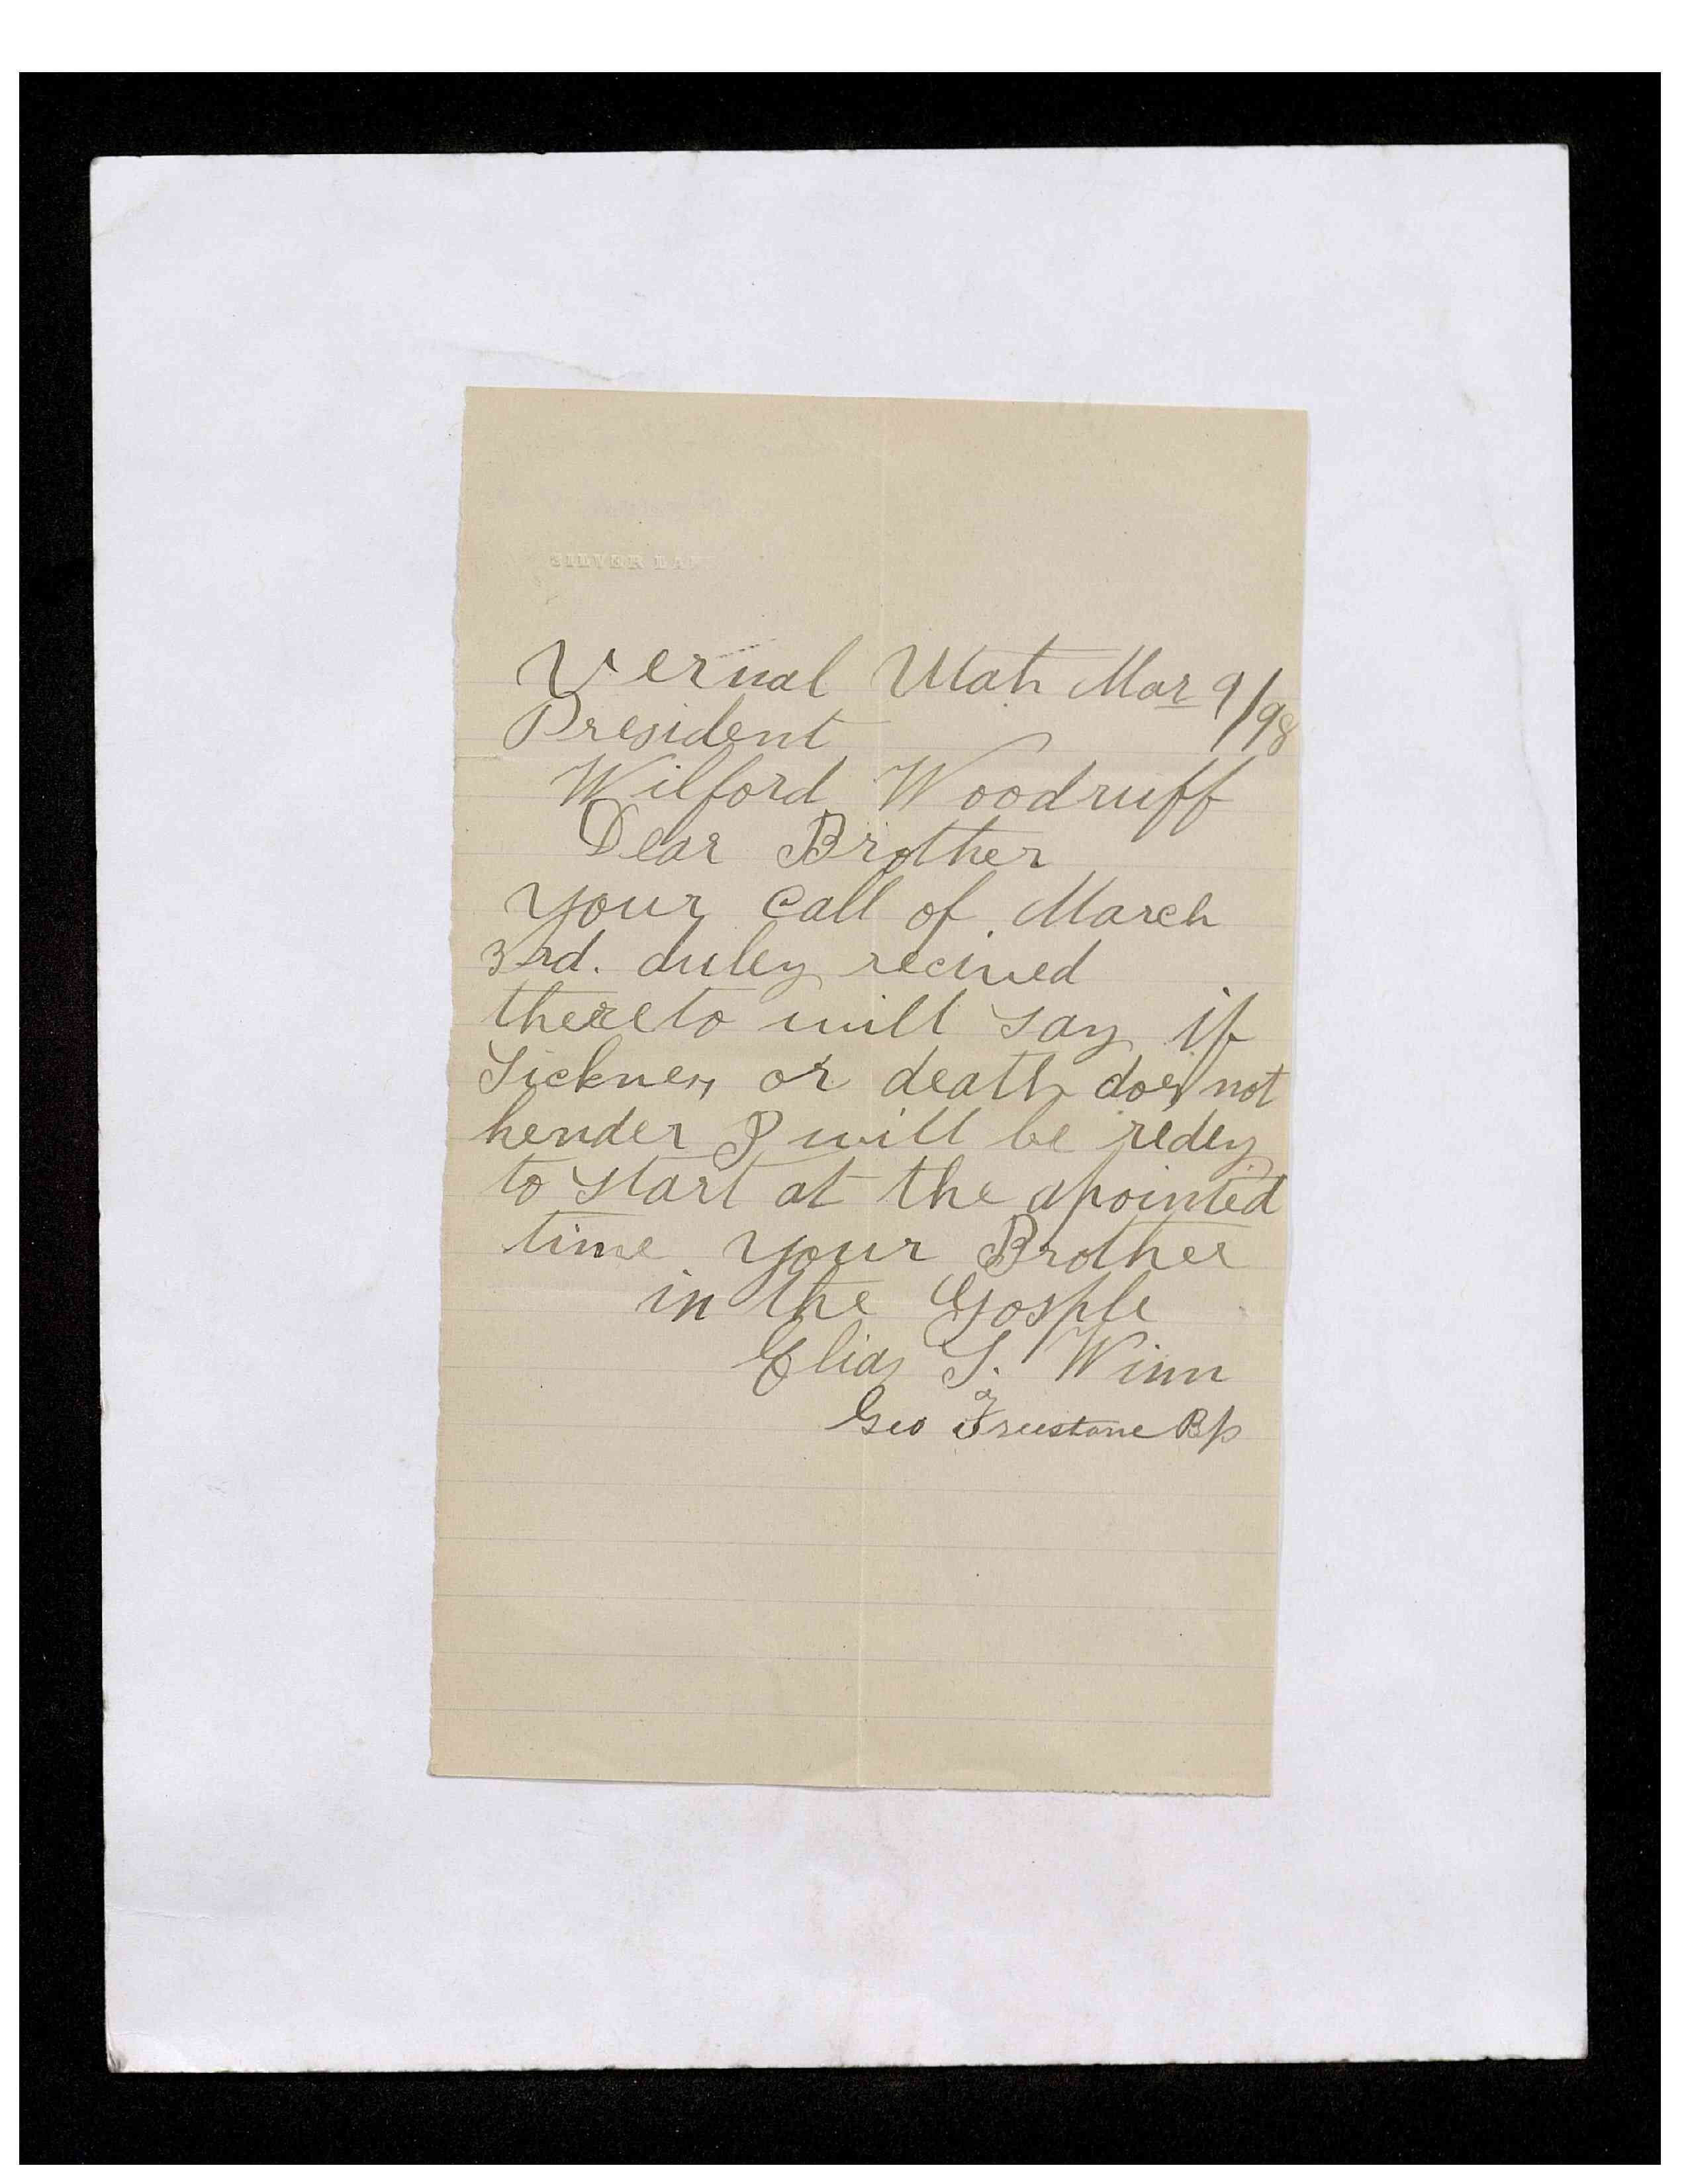 SILVER LA
Vernal Utah Mar 9/98
President
Wilford Woodruff
Dear Brother
your call of March
3rd. duley recived
thereto will say if
Sickness or death does not
hender I will be redey
to start at the apointed
time your Brother
in the Gosple
Elias S. Winn
Geo Freestone Bp